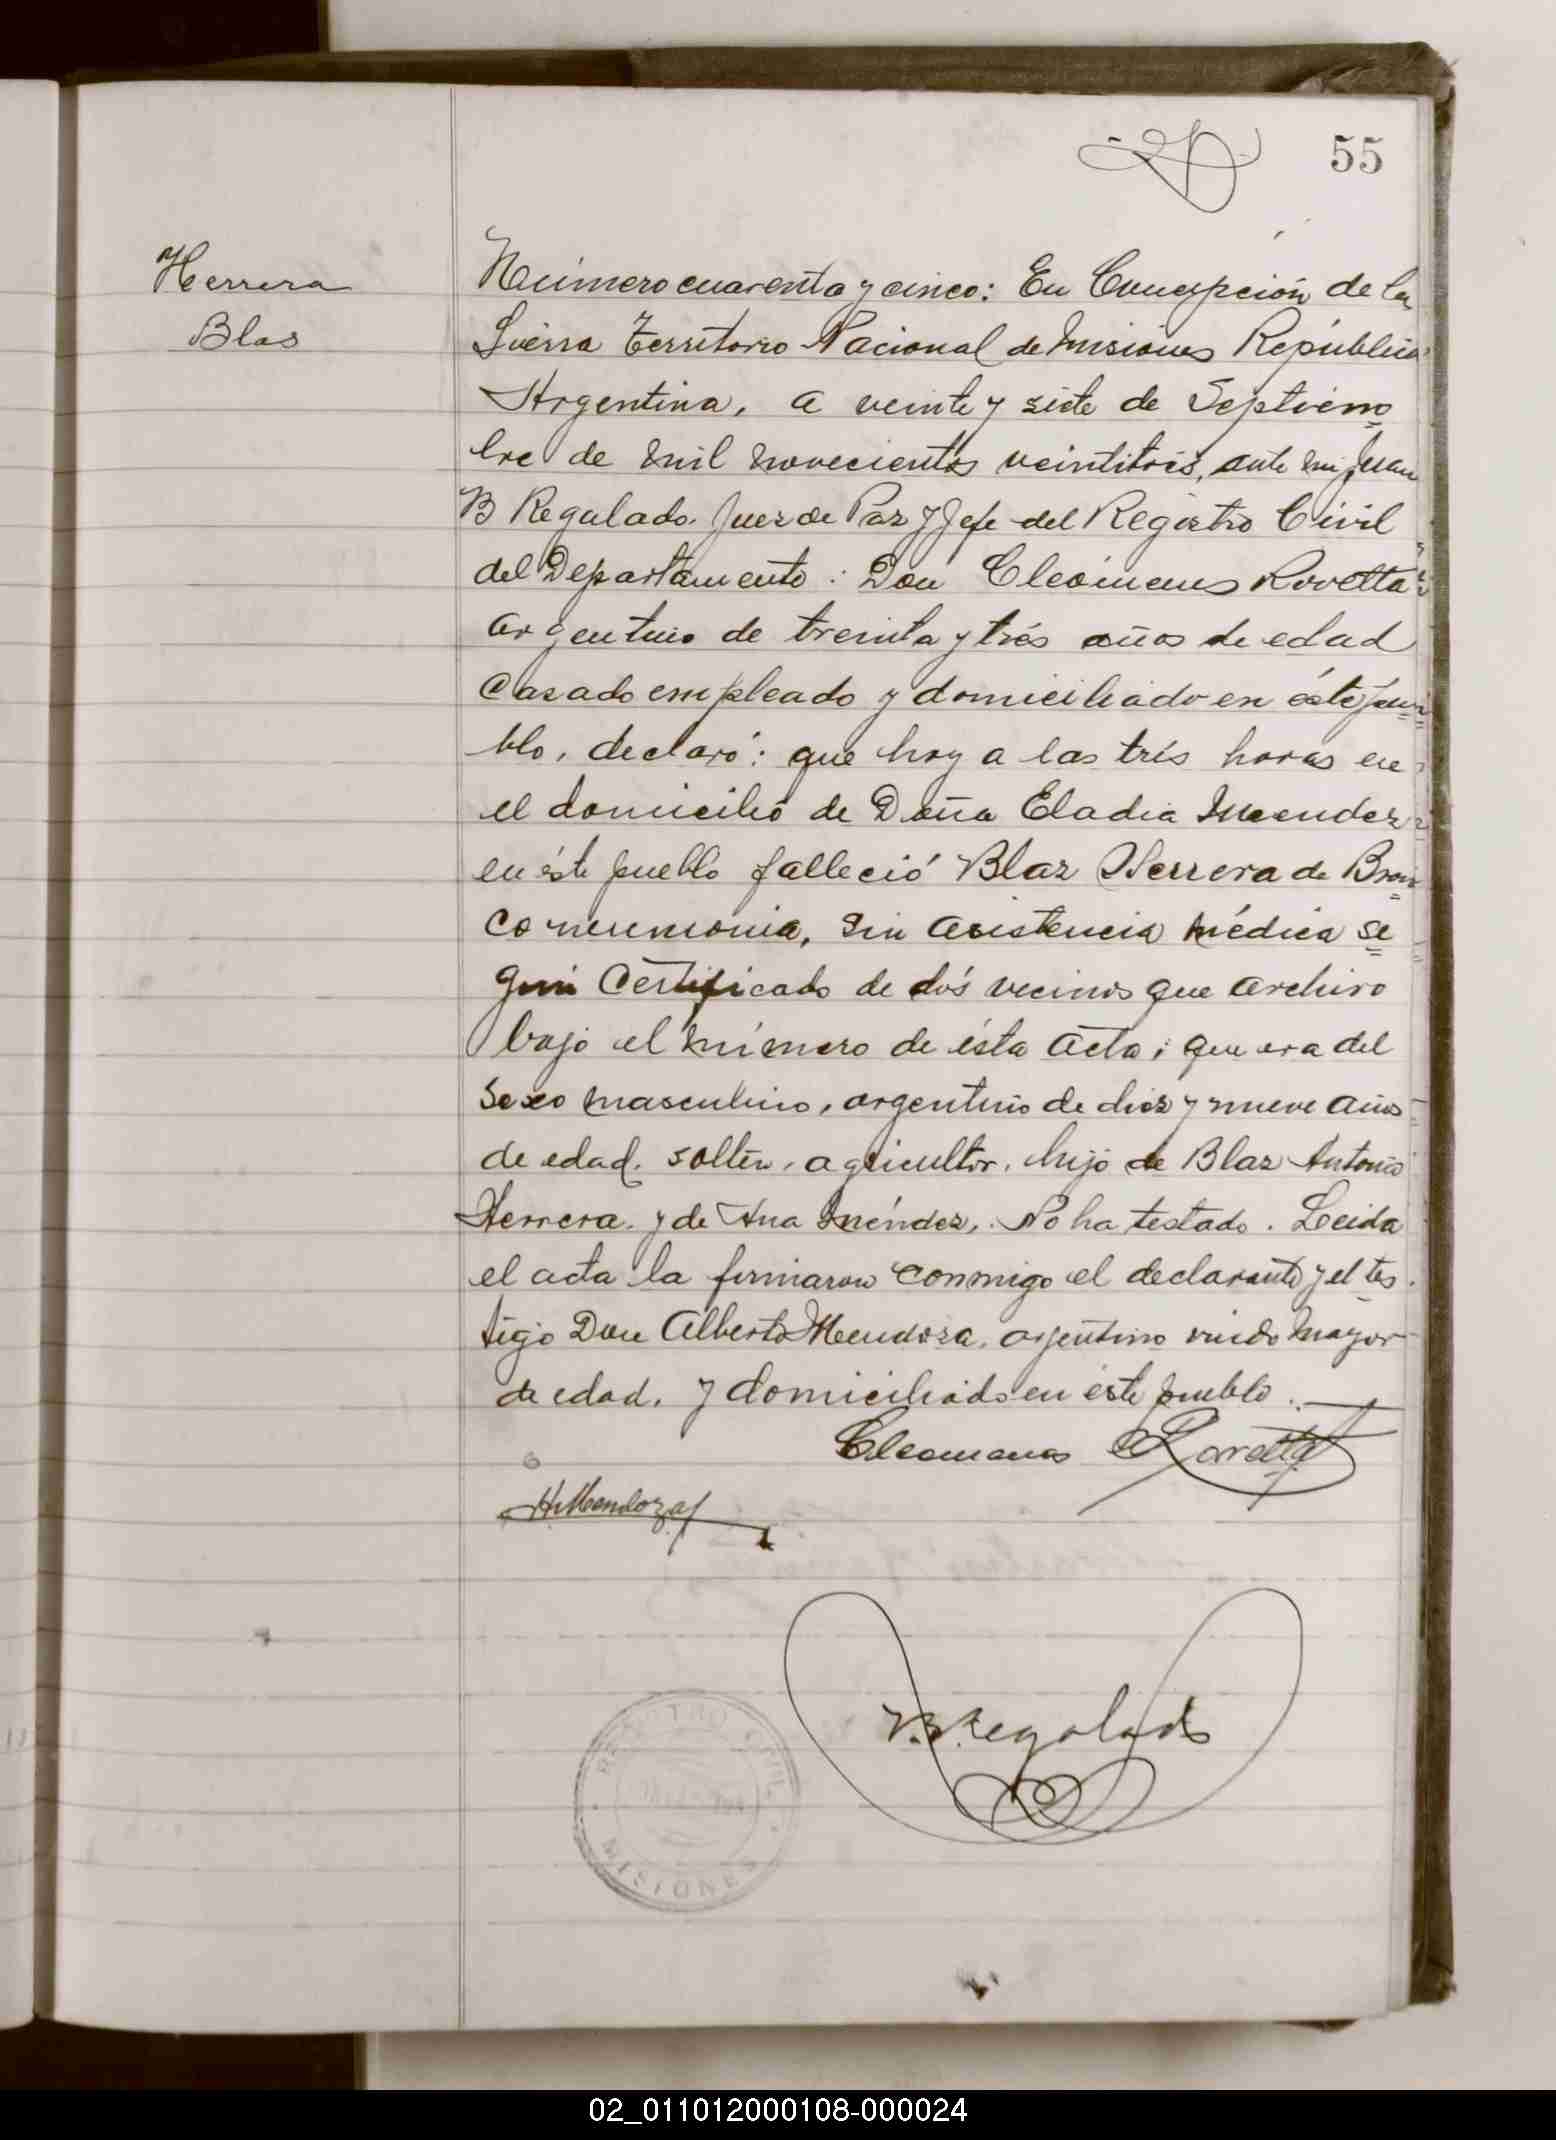 55
Herrera
Blas
Número cuarenta y cinco: En Concepción de la
Sierra Territorio Nacional de Misiones República
Argentina, a veinte y siete de Septiem
bre de mil novecientos veintitrés, ante mi Juan
B Regalado. Juez de Paz y Jefe del Registro Civil
del Departamento: Don Cleómenes Rovetta
argentino de treinta y trés años de edad
Casado empleado y domiciliado en éste pue
blo, declaró: que hoy a las trés horas en
el domicilio de Doña Eladia Mendez
en éste pueblo falleció Blaz Herrera de Bron
coneumonia, sin asistencia médica se
gún Certificado de dós vecinos que archivo
bajo el número de ésta acta; que era del
sexo masculino, argentino de diez y nueve años
de edad, soltero, agricultor, hijo de Blaz Antonio
Herrera, y de Ana Méndez, No ha testado. Leida
el acta la firmaron conmigo el declarante y el tes
tigo Don Alberto Mendoza, argentino viudo mayor
de edad, y domiciliado en éste pueblo.
Cleomenes Rovetta
A. Mendoza
B. Regalado
REGISTRO CIVIL
MISIONES
02_011012000108-000024